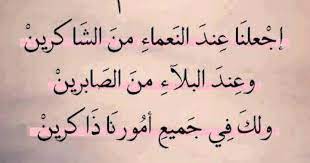 إجْعلنَا عِندَ النَعماءِ منَ الشاكرينْ
وعِندَ البلآءِ منَ الصابرينْ
ولكَ فِي جَميعِ أمُورنَا ذَاكرينْ